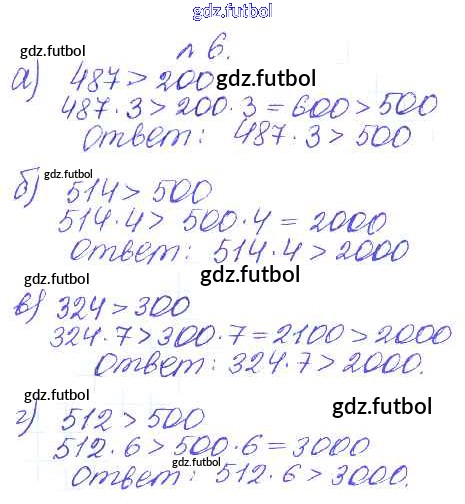 gdz.futbol
№ 6.
gdz.futbol
а) 487 > 200 gdz.futbol
487 · 3 > 200 · 3 = 600 > 500
Ответ: 487 · 3 > 500
gdz.futbol
б) 514 > 500
514 · 4 > 500 · 4 = 2000
Ответ: 514 · 4 > 2000
gdz.futbol gdz.futbol
в) 324 > 300
324 · 7 > 300 · 7 = 2100 > 2000
Ответ: 324 · 7 > 2000.
gdz.futbol gdz.futbol
г) 512 > 500
512 · 6 > 500 · 6 = 3000
gdz.futbol
Ответ: 512 · 6 > 3000.